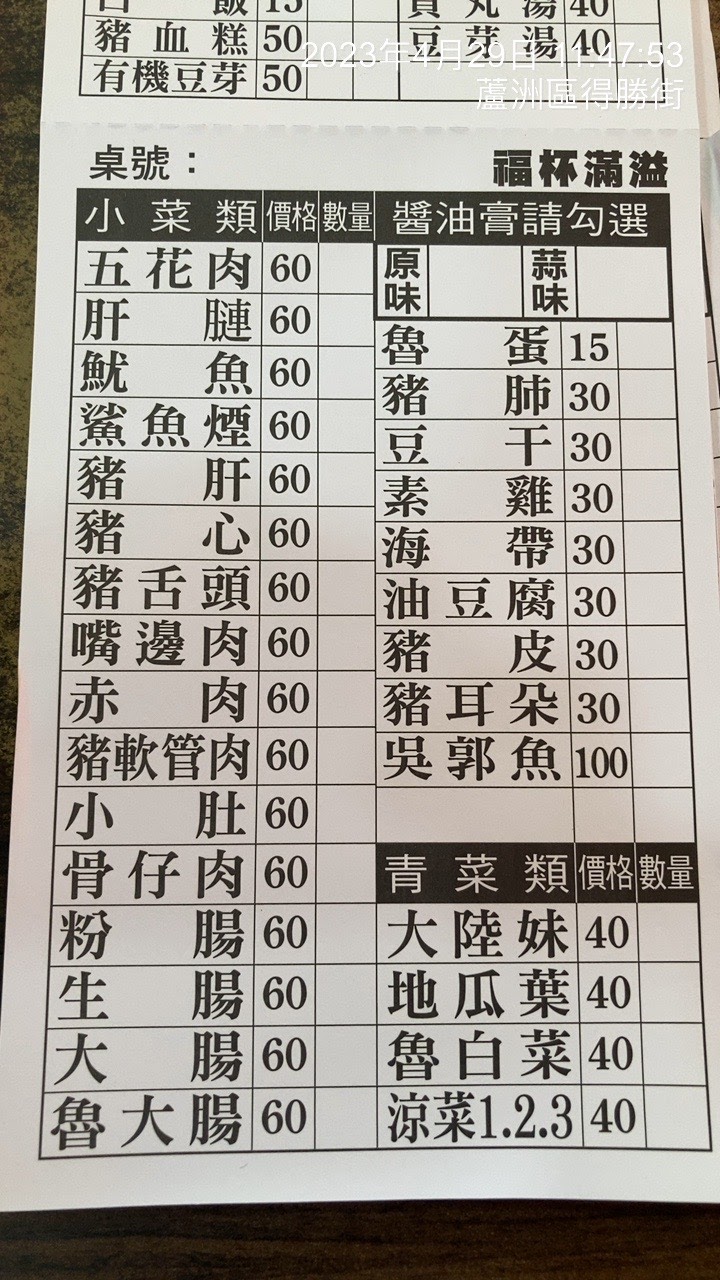 飯 15
湯 40
豬血糕 50
豆芽湯 40
有機豆芽 50
2023年4月29日 11:47:53
蘆洲區得勝街
桌號：
福杯滿溢
小菜類 價格 數量
五花肉 60
肝膁 60
魷魚 60
鯊魚煙 60
豬肝 60
豬心 60
豬舌頭 60
嘴邊肉 60
赤肉 60
豬軟管肉 60
小肚 60
骨仔肉 60
粉腸 60
生腸 60
大腸 60
魯大腸 60
醬油膏請勾選
原味 蒜味
魯蛋 15
豬肺 30
豆干 30
素雞 30
海帶 30
油豆腐 30
豬皮 30
豬耳朵 30
吳郭魚 100
青菜類 價格 數量
大陸妹 40
地瓜葉 40
魯白菜 40
涼菜1.2.3 40